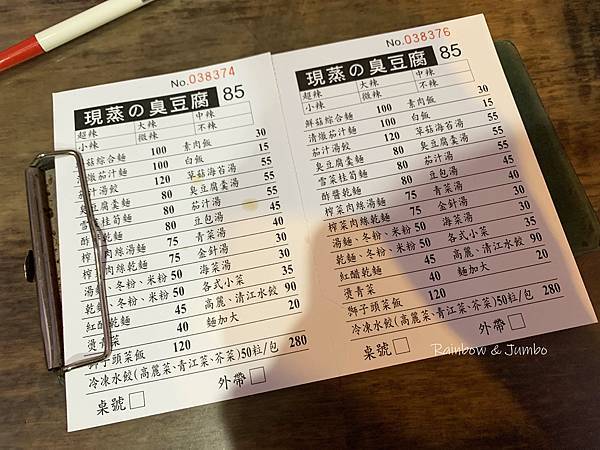 No.038374
現蒸の臭豆腐 85
超辣 大辣 中辣
小辣 微辣 不辣
菇綜合麵 100 素肉飯 30
燉茄汁麵 100 白飯 15
茄汁湯餃 120 草菇海苔湯 55
臭豆腐羹麵 80 臭豆腐羹湯 55
雪菜桂筍麵 80 茄汁湯 55
酢醬乾麵 80 豆包湯 45
榨菜肉絲湯麵 75 青菜湯 40
榨菜肉絲乾麵 75 金針湯 30
湯麵、冬粉、米粉 50 海菜湯 40
乾麵、冬粉、米粉 50 各式小菜 35
紅醋乾麵 45 高麗、清江水餃 90
燙青菜 40 麵加大 20
獅子頭菜飯 120
冷凍水餃(高麗菜、青江菜、芥菜)50粒/包 280
桌號 外帶
No.038376
現蒸の臭豆腐 85
超辣 大辣 中辣
小辣 微辣 不辣
鮮菇綜合麵 100 素肉飯 30
清燉茄汁麵 100 白飯 15
茄汁湯餃 120 草菇海苔湯 55
臭豆腐羹麵 80 臭豆腐羹湯 55
雪菜桂筍麵 80 茄汁湯 55
酢醬乾麵 80 豆包湯 45
榨菜肉絲湯麵 75 青菜湯 40
榨菜肉絲乾麵 75 金針湯 30
湯麵、冬粉、米粉 50 海菜湯 40
乾麵、冬粉、米粉 50 各式小菜 35
紅醋乾麵 45 高麗、清江水餃 90
燙青菜 40 麵加大 20
獅子頭菜飯 120
冷凍水餃(高麗菜、青江菜、芥菜)50粒/包 280
桌號 外帶
Rainbow & Jumbo